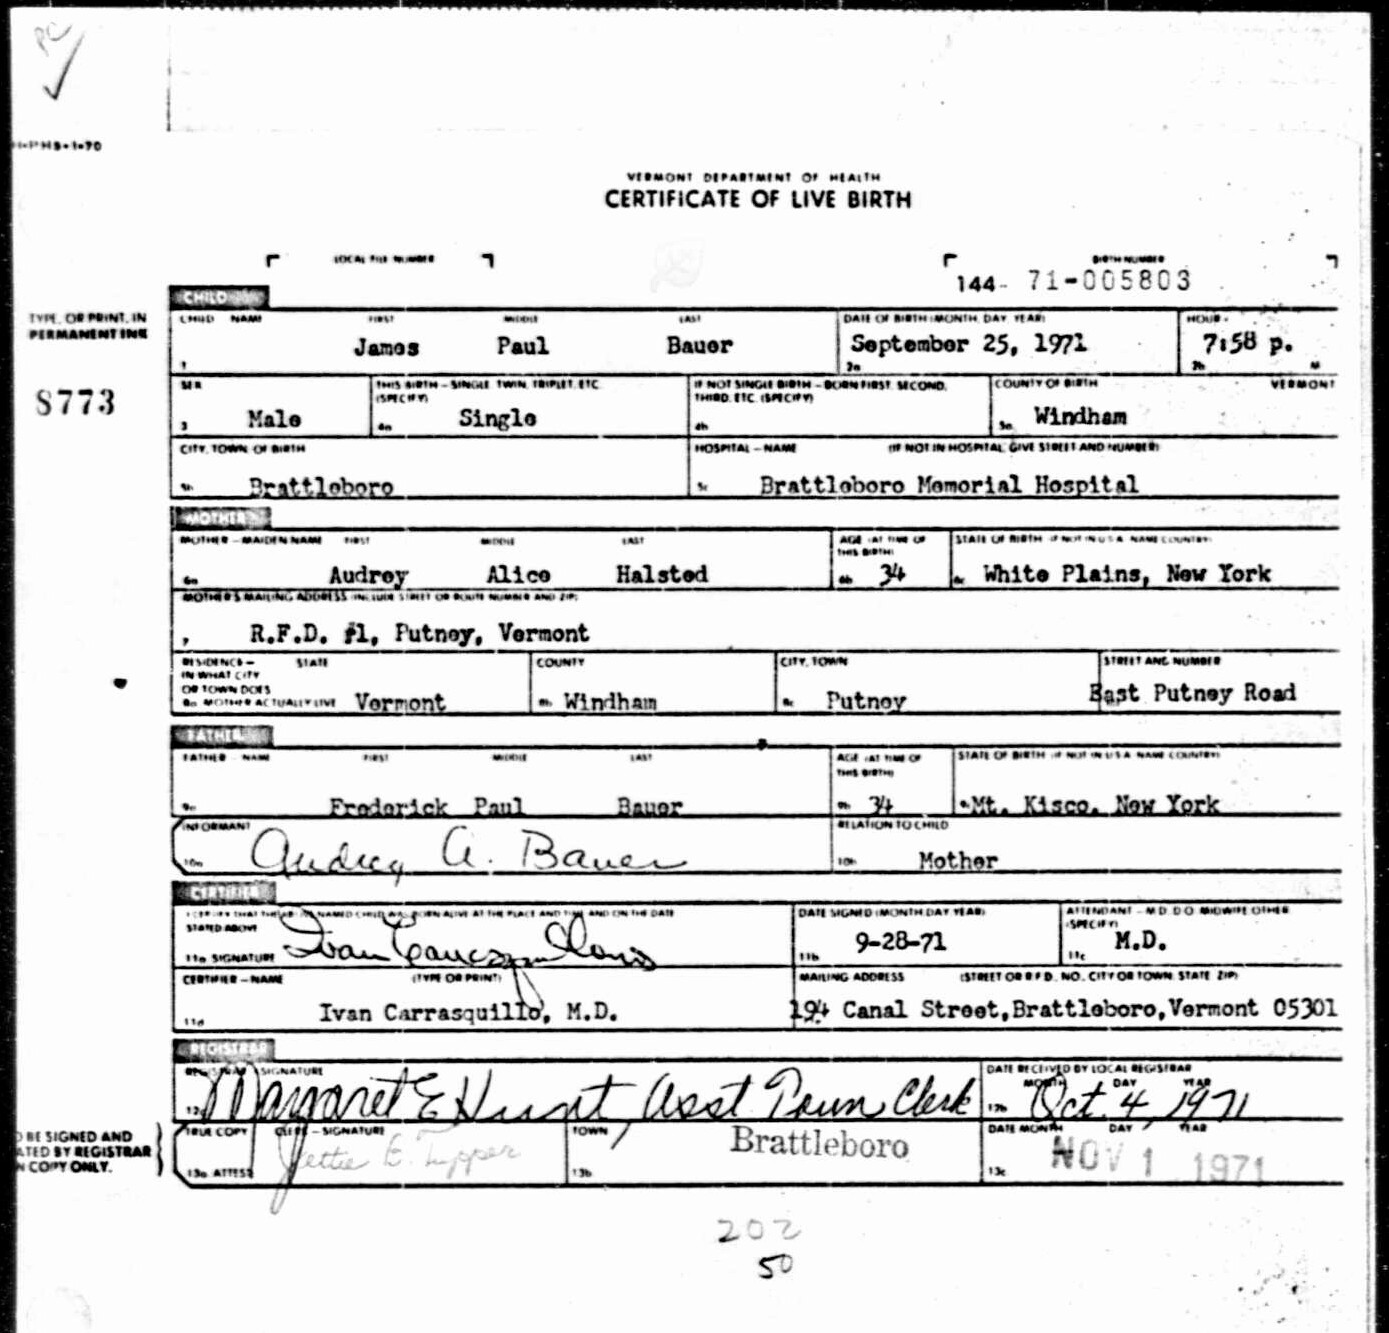 PC
H-PHS-1-70
VERMONT DEPARTMENT OF HEALTH
CERTIFICATE OF LIVE BIRTH
LOCAL FILE NUMBER
BIRTH NUMBER
144- 71-005803
CHILD
TYPE, OR PRINT, IN
PERMANENT INK
S773
CHILD NAME FIRST MIDDLE LAST DATE OF BIRTH (MONTH, DAY, YEAR) HOUR
1 James Paul Bauer 2a September 25, 1971 2b 7:58 p. M
SEX THIS BIRTH - SINGLE, TWIN, TRIPLET, ETC. (SPECIFY) IF NOT SINGLE BIRTH - BORN FIRST, SECOND, THIRD, ETC. (SPECIFY) COUNTY OF BIRTH VERMONT
3 Male 4a Single 4b 5a Windham
CITY, TOWN, OF BIRTH HOSPITAL - NAME (IF NOT IN HOSPITAL, GIVE STREET AND NUMBER)
5b Brattleboro 5c Brattleboro Memorial Hospital
MOTHER
MOTHER - MAIDEN NAME FIRST MIDDLE LAST AGE (AT TIME OF THIS BIRTH) STATE OF BIRTH (IF NOT IN U.S.A. NAME COUNTRY)
6a Audrey Alice Halsted 6b 34 6c White Plains, New York
MOTHER'S MAILING ADDRESS (INCLUDE STREET OR ROUTE NUMBER AND ZIP)
7 R.F.D. #1, Putney, Vermont
RESIDENCE - STATE COUNTY CITY, TOWN STREET AND NUMBER
IN WHAT CITY
OR TOWN DOES
8a MOTHER ACTUALLY LIVE Vermont 8b Windham 8c Putney East Putney Road
FATHER
FATHER - NAME FIRST MIDDLE LAST AGE (AT TIME OF THIS BIRTH) STATE OF BIRTH (IF NOT IN U.S.A. NAME COUNTRY)
9a Frederick Paul Bauer 9b 34 Mt. Kisco, New York
INFORMANT RELATION TO CHILD
10a Audrey A. Bauer 10b Mother
CERTIFIER
I CERTIFY THAT THE ABOVE NAMED CHILD WAS BORN ALIVE AT THE PLACE AND TIME AND ON THE DATE STATED ABOVE DATE SIGNED (MONTH, DAY, YEAR) ATTENDANT - M.D. D.O. MIDWIFE OTHER (SPECIFY)
11a SIGNATURE Ivan Carrasquillo 11b 9-28-71 11c M.D.
CERTIFIER - NAME (TYPE OR PRINT) MAILING ADDRESS (STREET OR R.F.D. NO., CITY OR TOWN, STATE, ZIP)
11d Ivan Carrasquillo, M.D. 194 Canal Street, Brattleboro, Vermont 05301
REGISTRAR
REGISTRAR SIGNATURE DATE RECEIVED BY LOCAL REGISTRAR
MONTH DAY YEAR
12a Margaret E Hunt, Asst Town Clerk 12b Oct. 4, 1971
TO BE SIGNED AND
DATED BY REGISTRAR
ON COPY ONLY.
TRUE COPY CLERK - SIGNATURE TOWN DATE MONTH DAY YEAR
13a ATTEST Jettie E. Tupper 13b Brattleboro 13c NOV 1 1971
202
50